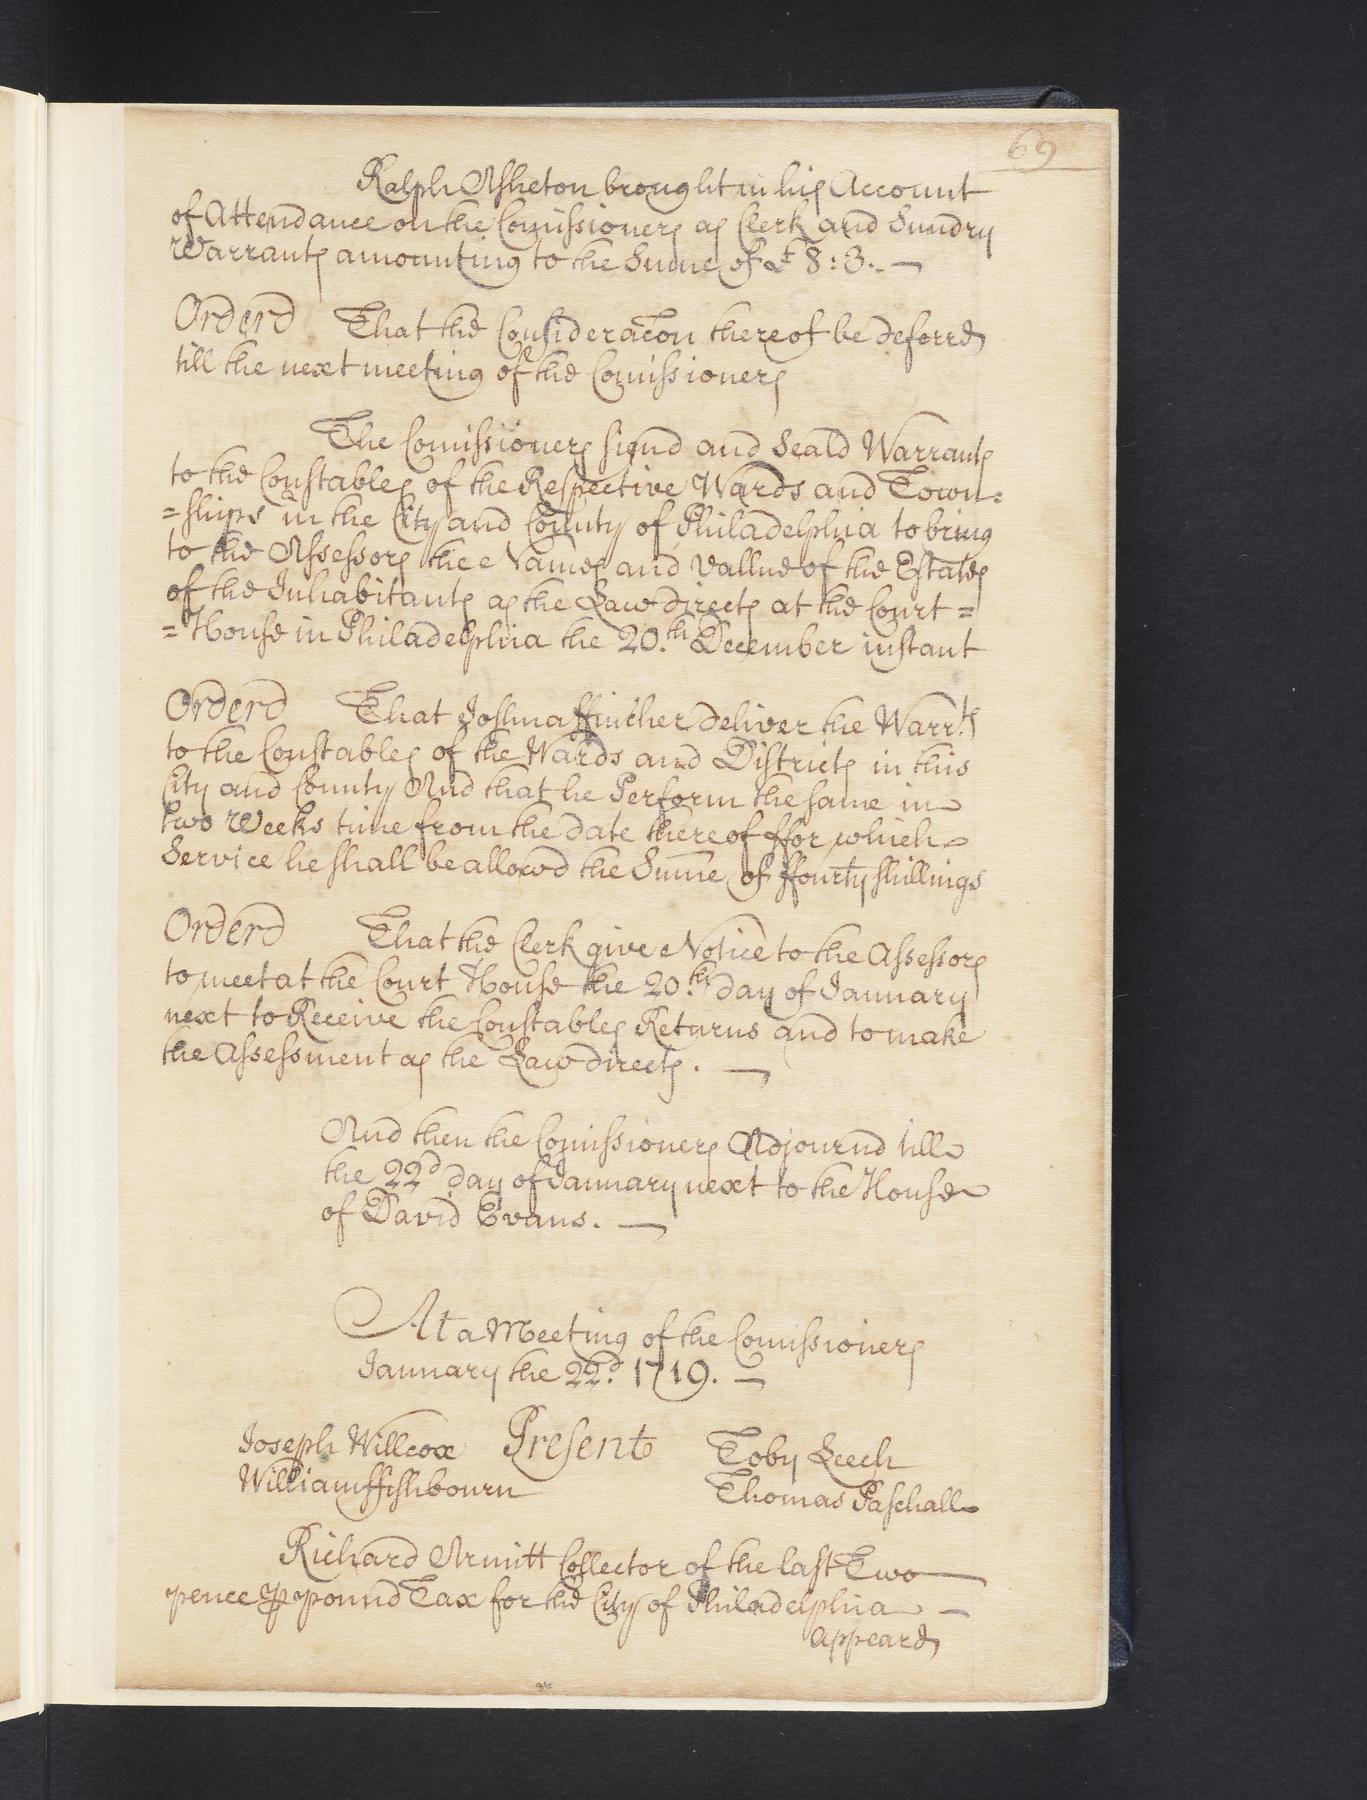 69
Ralph Asheton brought in his Account
of Attendance on the Comissioners as Clerk and Sundry
Warrants amounting to the Sume of £ 8:3.. —
Orderd That the Consideracon thereof be deferrd
till the next meeting of the Comissioners
The Comissioners signd and Seald Warrants
to the Constables of the Respective Wards and Town=
=ships in the City and County of Philadelphia to bring
to the Assessors the Names and Vallue of the Estates
of the Inhabitants as the Law directs at the Court=
=House in Philadelphia the 20.th December instant
Orderd That Joshua ffincher deliver the Warr.ts
to the Constables of the Wards and Districts in this
City and County And that he Perform the same in
two Weeks time from the date thereof ffor which
Service he shall be allowd the Sume of ffourty shillings
Orderd That the Clerk give Notice to the Assessors
to meet at the Court House the 20.th day of January
next to Receive the Constables Returns and to make
the Assessment as the Law directs. —
And then the Comissioners Adjournd till
the 22d day of January next to the House
of David Evans. —
At a Meeting of the Comissioners
January the 22.d 1719. —
Joseph Willcox Present Toby Leech
William ffishbourn Thomas Paschall
Richard Armitt Collector of the last Two
pence ℔ pound Tax for the City of Philadelphia —
appeard